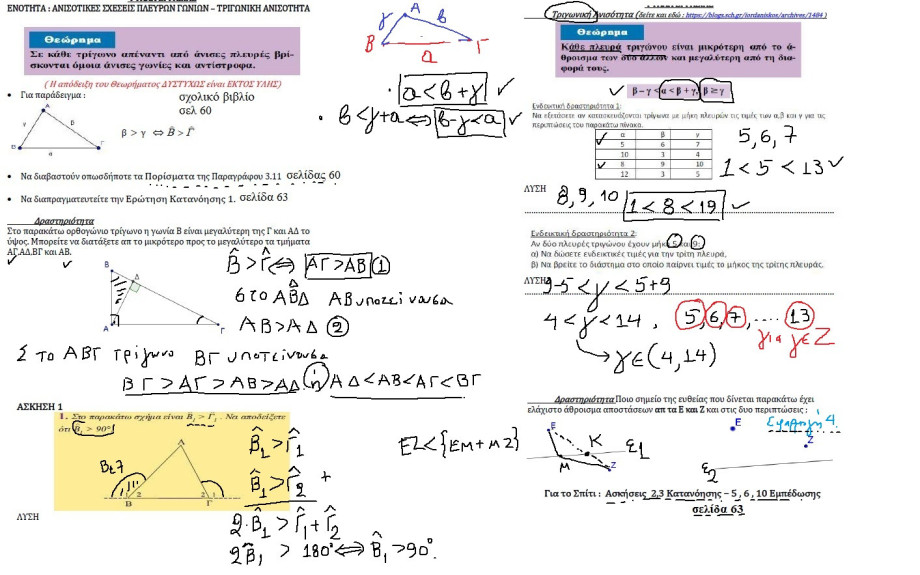 ΕΝΟΤΗΤΑ : ΑΝΙΣΟΤΙΚΕΣ ΣΧΕΣΕΙΣ ΠΛΕΥΡΩΝ ΓΩΝΙΩΝ – ΤΡΙΓΩΝΙΚΗ ΑΝΙΣΟΤΗΤΑ
Θεώρημα
Σε κάθε τρίγωνο απέναντι από άνισες πλευρές βρί-
σκονται όμοια άνισες γωνίες και αντίστροφα.
( Η απόδειξη του Θεωρήματος ΔΥΣΤΥΧΩΣ είναι ΕΚΤΟΣ ΥΛΗΣ)
• Για παράδειγμα :
σχολικό βιβλίο
σελ 60
Α
γ β
Β Γ
α
β > γ ⇔ B̂ > Γ̂
• Να διαβαστούν οπωσδήποτε τα Πορίσματα της Παραγράφου 3.11 σελίδας 60
• Να διαπραγματευτείτε την Ερώτηση Κατανόησης 1. σελίδα 63
Δραστηριότητα
Στο παρακάτω ορθογώνιο τρίγωνο η γωνία Β είναι μεγαλύτερη της Γ και ΑΔ το
ύψος. Μπορείτε να διατάξετε απ το μικρότερο προς το μεγαλύτερο τα τμήματα
ΑΓ,ΑΔ,ΒΓ και ΑΒ.
Β
Δ
Α Γ
B̂ > Γ̂ ⇔ ΑΓ > ΑΒ ①
στο ΑB̂Δ ΑΒ υποτείνουσα
ΑΒ > ΑΔ ②
Στο ΑΒΓ τρίγωνο ΒΓ υποτείνουσα
ΒΓ > ΑΓ > ΑΒ > ΑΔ ή ΑΔ < ΑΒ < ΑΓ < ΒΓ
ΑΣΚΗΣΗ 1
1. Στο παρακάτω σχήμα είναι B̂₁ > Γ̂₁ . Να αποδείξετε
ότι B̂₁ > 90°.
Α
2 2 1
Β Γ
B̂₁ > Γ̂₁
B̂₁ > Γ̂₂ +
2·B̂₁ > Γ̂₁ + Γ̂₂
2B̂₁ > 180° ⇔ B̂₁ > 90°.
ΛΥΣΗ
Α
γ β
Β Γ
α
• α < β + γ ✓
• β < γ + α ⇔ β - γ < α ✓
ΕΖ < {ΕΜ + ΜΖ}
Τριγωνική Ανισότητα (δείτε και εδώ : https://blogs.sch.gr/iordaniskos/archives/1484 )
Θεώρημα
Κάθε πλευρά τριγώνου είναι μικρότερη από το ά-
θροισμα των δύο άλλων και μεγαλύτερη από τη δια-
φορά τους.
✓ β – γ < α < β + γ, β ≥ γ
Ενδεικτική δραστηριότητα 1:
Να εξετάσετε αν κατασκευάζονται τρίγωνα με μήκη πλευρών τις τιμές των α,β και γ για τις
περιπτώσεις του παρακάτω πίνακα.
α β γ
5 6 7
10 3 4
8 9 10
12 3 5
5, 6, 7
1 < 5 < 13 ✓
ΛΥΣΗ
8, 9, 10
1 < 8 < 19 ✓
Ενδεικτική δραστηριότητα 2:
Αν δύο πλευρές τριγώνου έχουν μήκη 5 και 9:
α) Να δώσετε ενδεικτικές τιμές για την τρίτη πλευρά,
β) Να βρείτε το διάστημα στο οποίο παίρνει τιμές το μήκος της τρίτης πλευράς.
ΛΥΣΗ
9-5 < γ < 5+9
4 < γ < 14 , 5, 6, 7, .... 13
για γ ∈ Ζ
γ ∈ (4, 14)
Δραστηριότητα Ποιο σημείο της ευθείας που δίνεται παρακάτω έχει
ελάχιστο άθροισμα αποστάσεων απ τα Ε και Ζ και στις δυο περιπτώσεις :
Ε
Κ
Μ
Ζ
ε1
Ε
Ζ
ε2
Για το Σπίτι : Ασκήσεις 2,3 Κατανόησης – 5 , 6 , 10 Εμπέδωσης
σελίδα 63